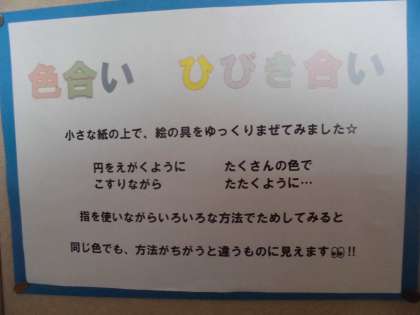 色合い ひびき合い
小さな紙の上で、絵の具をゆっくりまぜてみました☆
円をえがくように たくさんの色で
こすりながら たたくように…
指を使いながらいろいろな方法でためしてみると
同じ色でも、方法がちがうと違うものに見えます👀!!